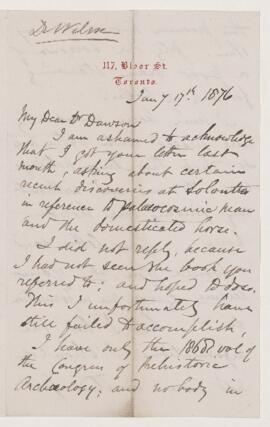 Dr Wilson
117, Bloor St.
Toronto.
Jany 17th 1876
My Dear Dr Dawson
I am ashamed to acknowledge
that I got your letter last
month, asking about certain
recent discoveries at Solutré
in reference to palæocosmic man
and the domesticated horse.
I did not reply, because
I had not seen the book you
referred to: and hoped to do so.
This I unfortunately have
still failed to accomplish.
I have only the 1868 vol of
the Congress of Prehistoric
Archæology; and nobody in